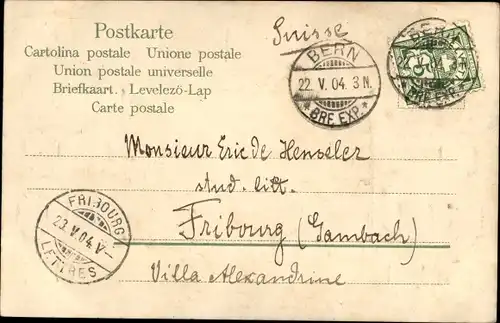 Postkarte
Cartolina postale Unione postale
Union postale universelle
Briefkaart. Levelező-Lap
Carte postale
Suisse
BERN
22. V. 04. 3 N.
* BRF. EXP. *
BERN
BRF. EXP.
5
Monsieur Eric de Henseler
stud. litt.
Fribourg (Gambach)
Villa Alexandrine
FRIBOURG
23. V. 04. V
LETTRES